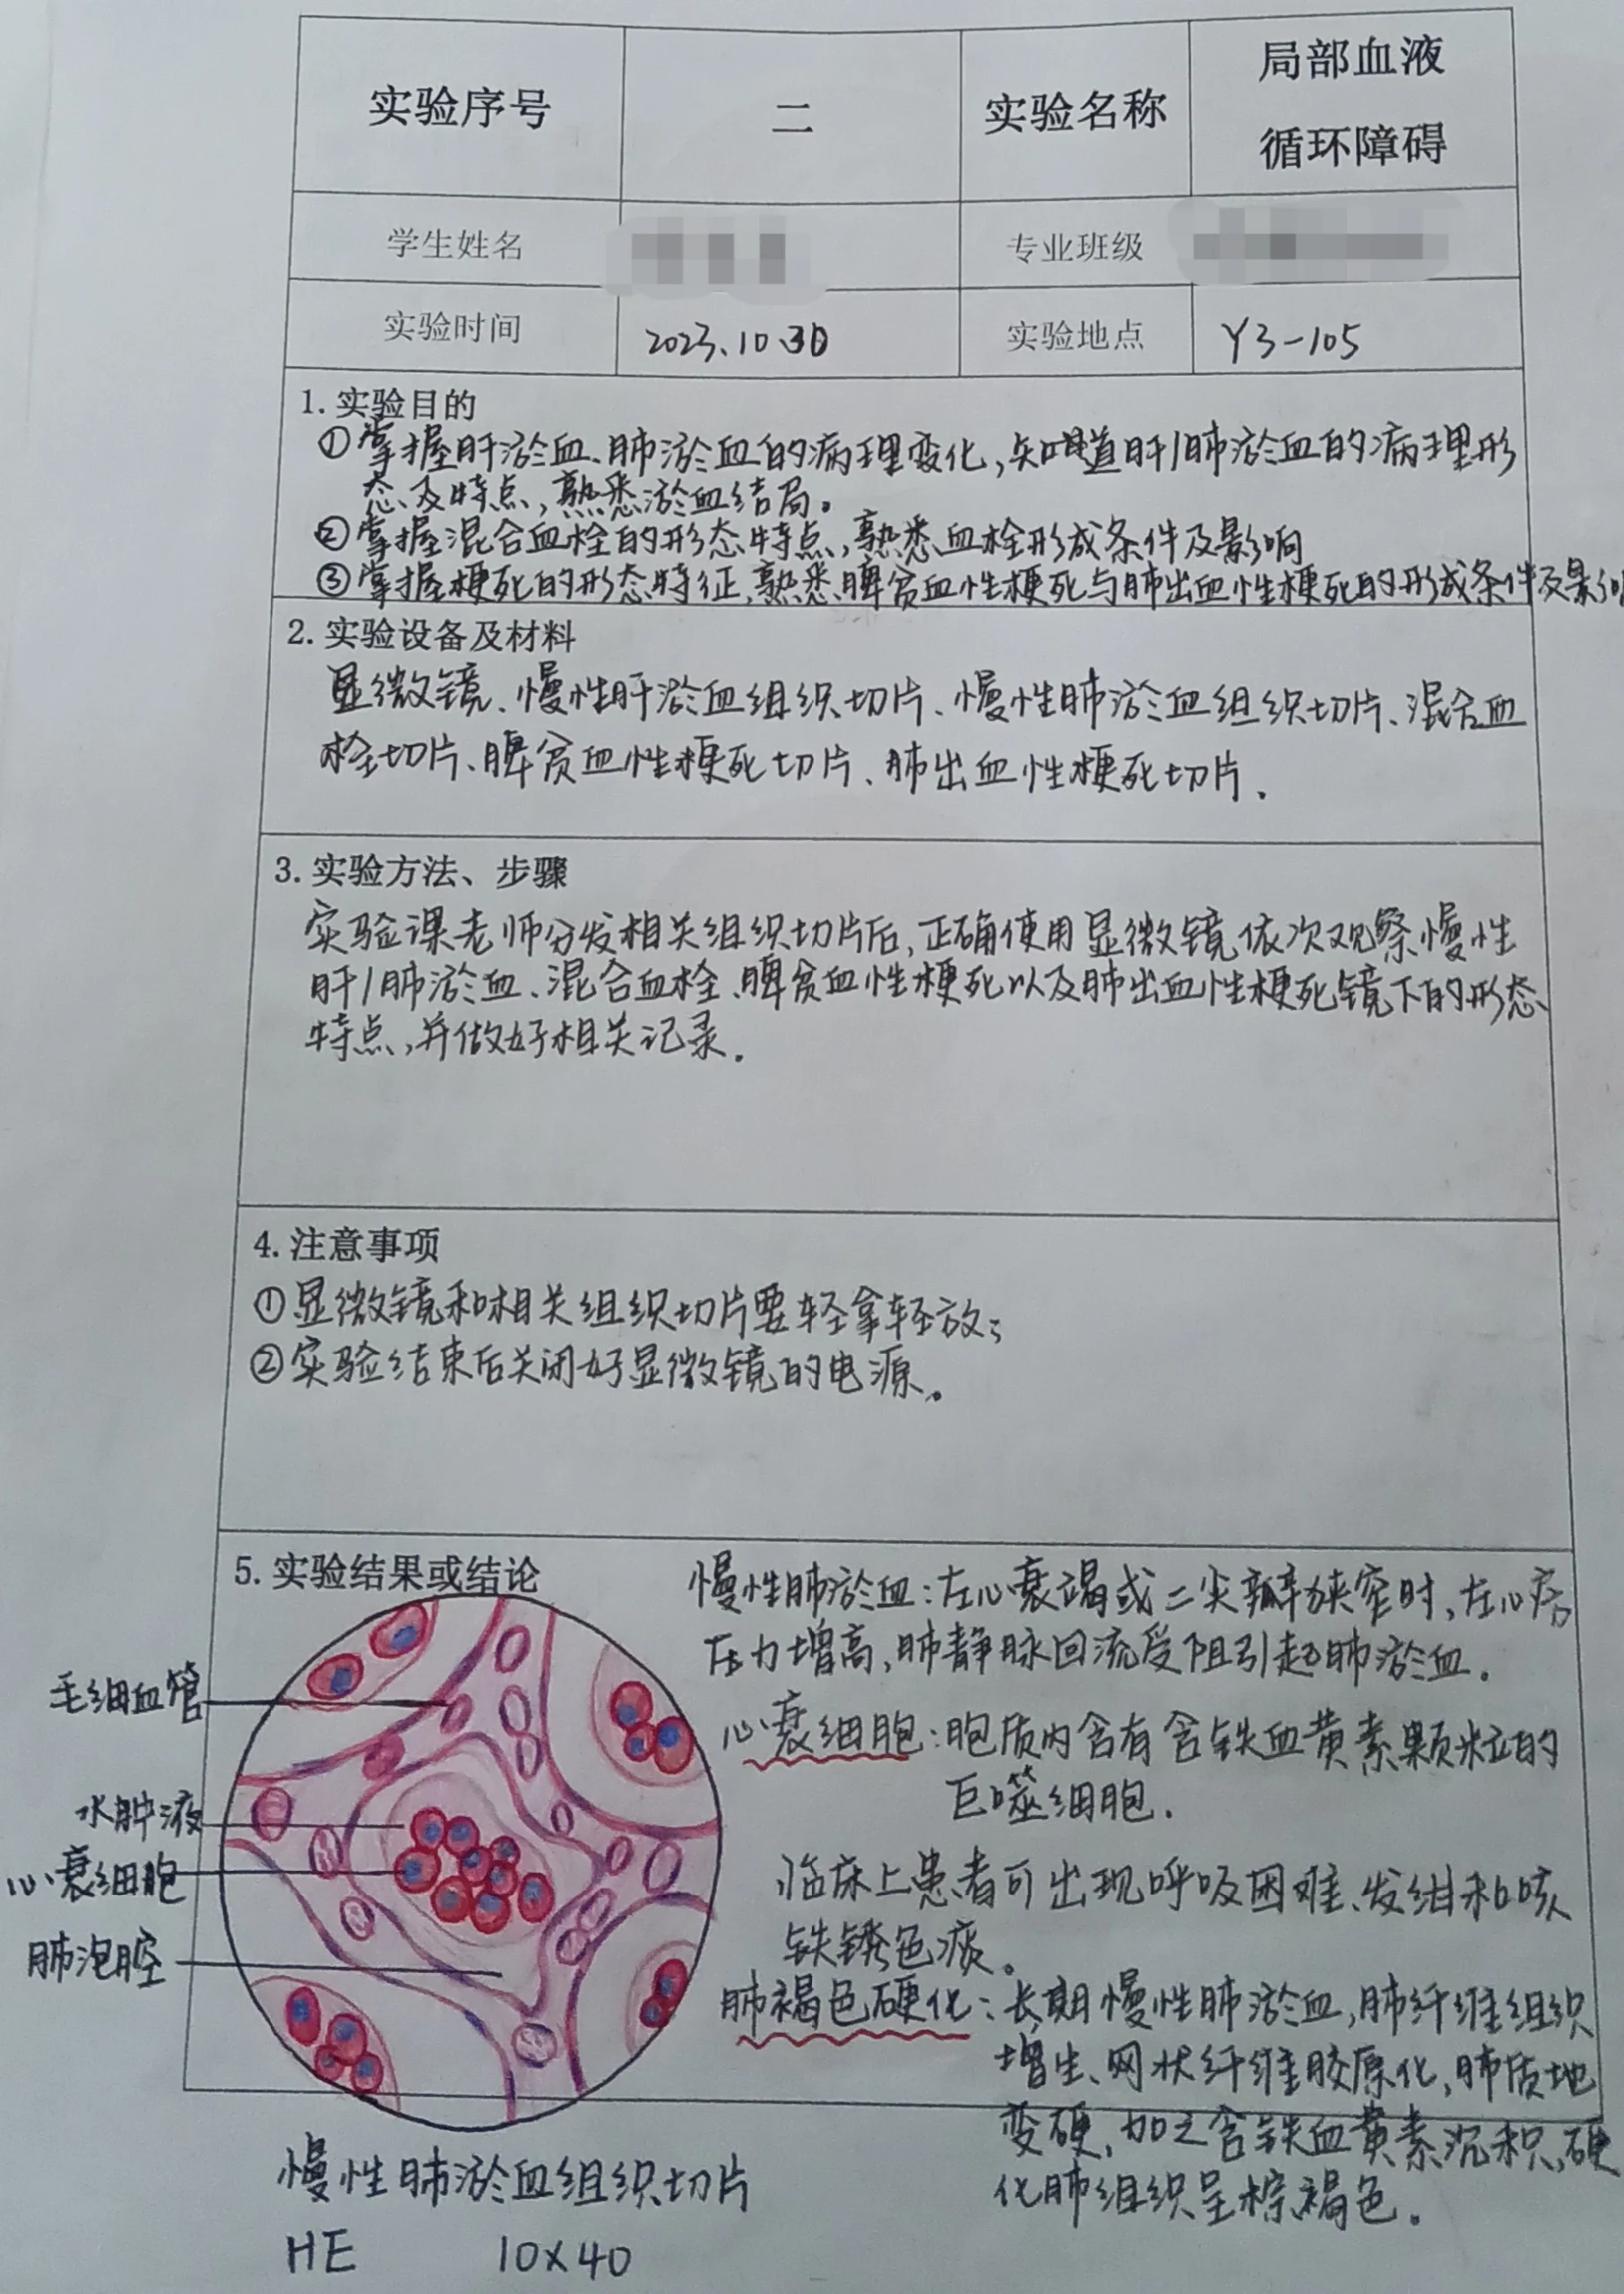 实验序号 二 实验名称 局部血液
循环障碍
学生姓名 专业班级
实验时间 2023.10.30 实验地点 Y3-105
1.实验目的
①掌握肝淤血、肺淤血的病理变化,知道肝/肺淤血的病理形
态及特点,熟悉淤血结局。
②掌握混合血栓的形态特点,熟悉血栓形成条件及影响
③掌握梗死的形态特征,熟悉脾贫血性梗死与肺出血性梗死的形成条件及影响
2.实验设备及材料
显微镜、慢性肝淤血组织切片、慢性肺淤血组织切片、混合血
栓切片、脾贫血性梗死切片、肺出血性梗死切片.
3.实验方法、步骤
实验课老师分发相关组织切片后,正确使用显微镜依次观察慢性
肝/肺淤血、混合血栓、脾贫血性梗死以及肺出血性梗死镜下的形态
特点,并做好相关记录.
4.注意事项
①显微镜和相关组织切片要轻拿轻放;
②实验结束后关闭好显微镜的电源。
5.实验结果或结论
慢性肺淤血:左心衰竭或二尖瓣狭窄时,左心房
压力增高,肺静脉回流受阻引起肺淤血.
心衰细胞:胞质内含有含铁血黄素颗粒的
巨噬细胞.
临床上患者可出现呼吸困难、发绀和咳
铁锈色痰。
肺褐色硬化:长期慢性肺淤血,肺纤维组织
增生、网状纤维胶原化,肺质地
变硬,加之含铁血黄素沉积,硬
化肺组织呈棕褐色。
毛细血管
水肿液
心衰细胞
肺泡腔
慢性肺淤血组织切片
HE 10×40